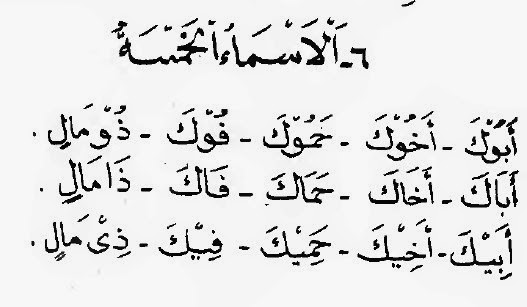 ٦ـ اَلْاَسْمَاءُ الْخَمْسَةُ
أَبُوْكَ ـ أَخُوْكَ ـ حَمُوْكَ ـ فُوْكَ ـ ذُوْمَالٍ .
أَبَاكَ ـ أَخَاكَ ـ حَمَاكَ ـ فَاكَ ـ ذَا مَالٍ .
أَبِيْكَ ـ أَخِيْكَ ـ حَمِيْكَ ـ فِيْكَ ـ ذِيْ مَالٍ .